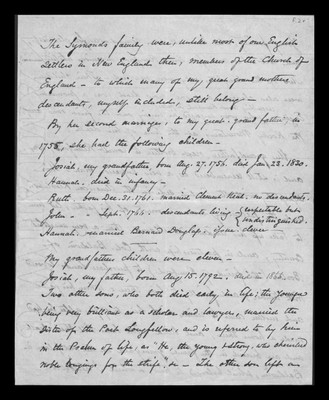 The Symonds family were, unlike most of our English
settlers in New England then, members of the Church of
England — to which many of my great grand mothers
descendants, myself included, still belong —
By her second marriage, to my great-grand father, in
1755, she had the following children —
Josiah, my grandfather, born Aug. 27. 1756. died Jan. 22. 1850.
Hannah. died in infancy —
Ruth born Dec. 31. 1761. married Clement no descendants.
John - Sept. 1766. descendants living respectable but undistinguished.
Hannah. married Barnard clever
My grandfathers children were eleven —
Josiah, my father, born Aug 15. 1792,
Two other sons, who both died early in life; the younger
being very brilliant as a scholar and lawyer, married the
sister of the Poet Longfellow, and is referred to by him
in the Psalm of life, as "He, the young & strong, who cherished
noble longings for the strife," &c — The other son left an